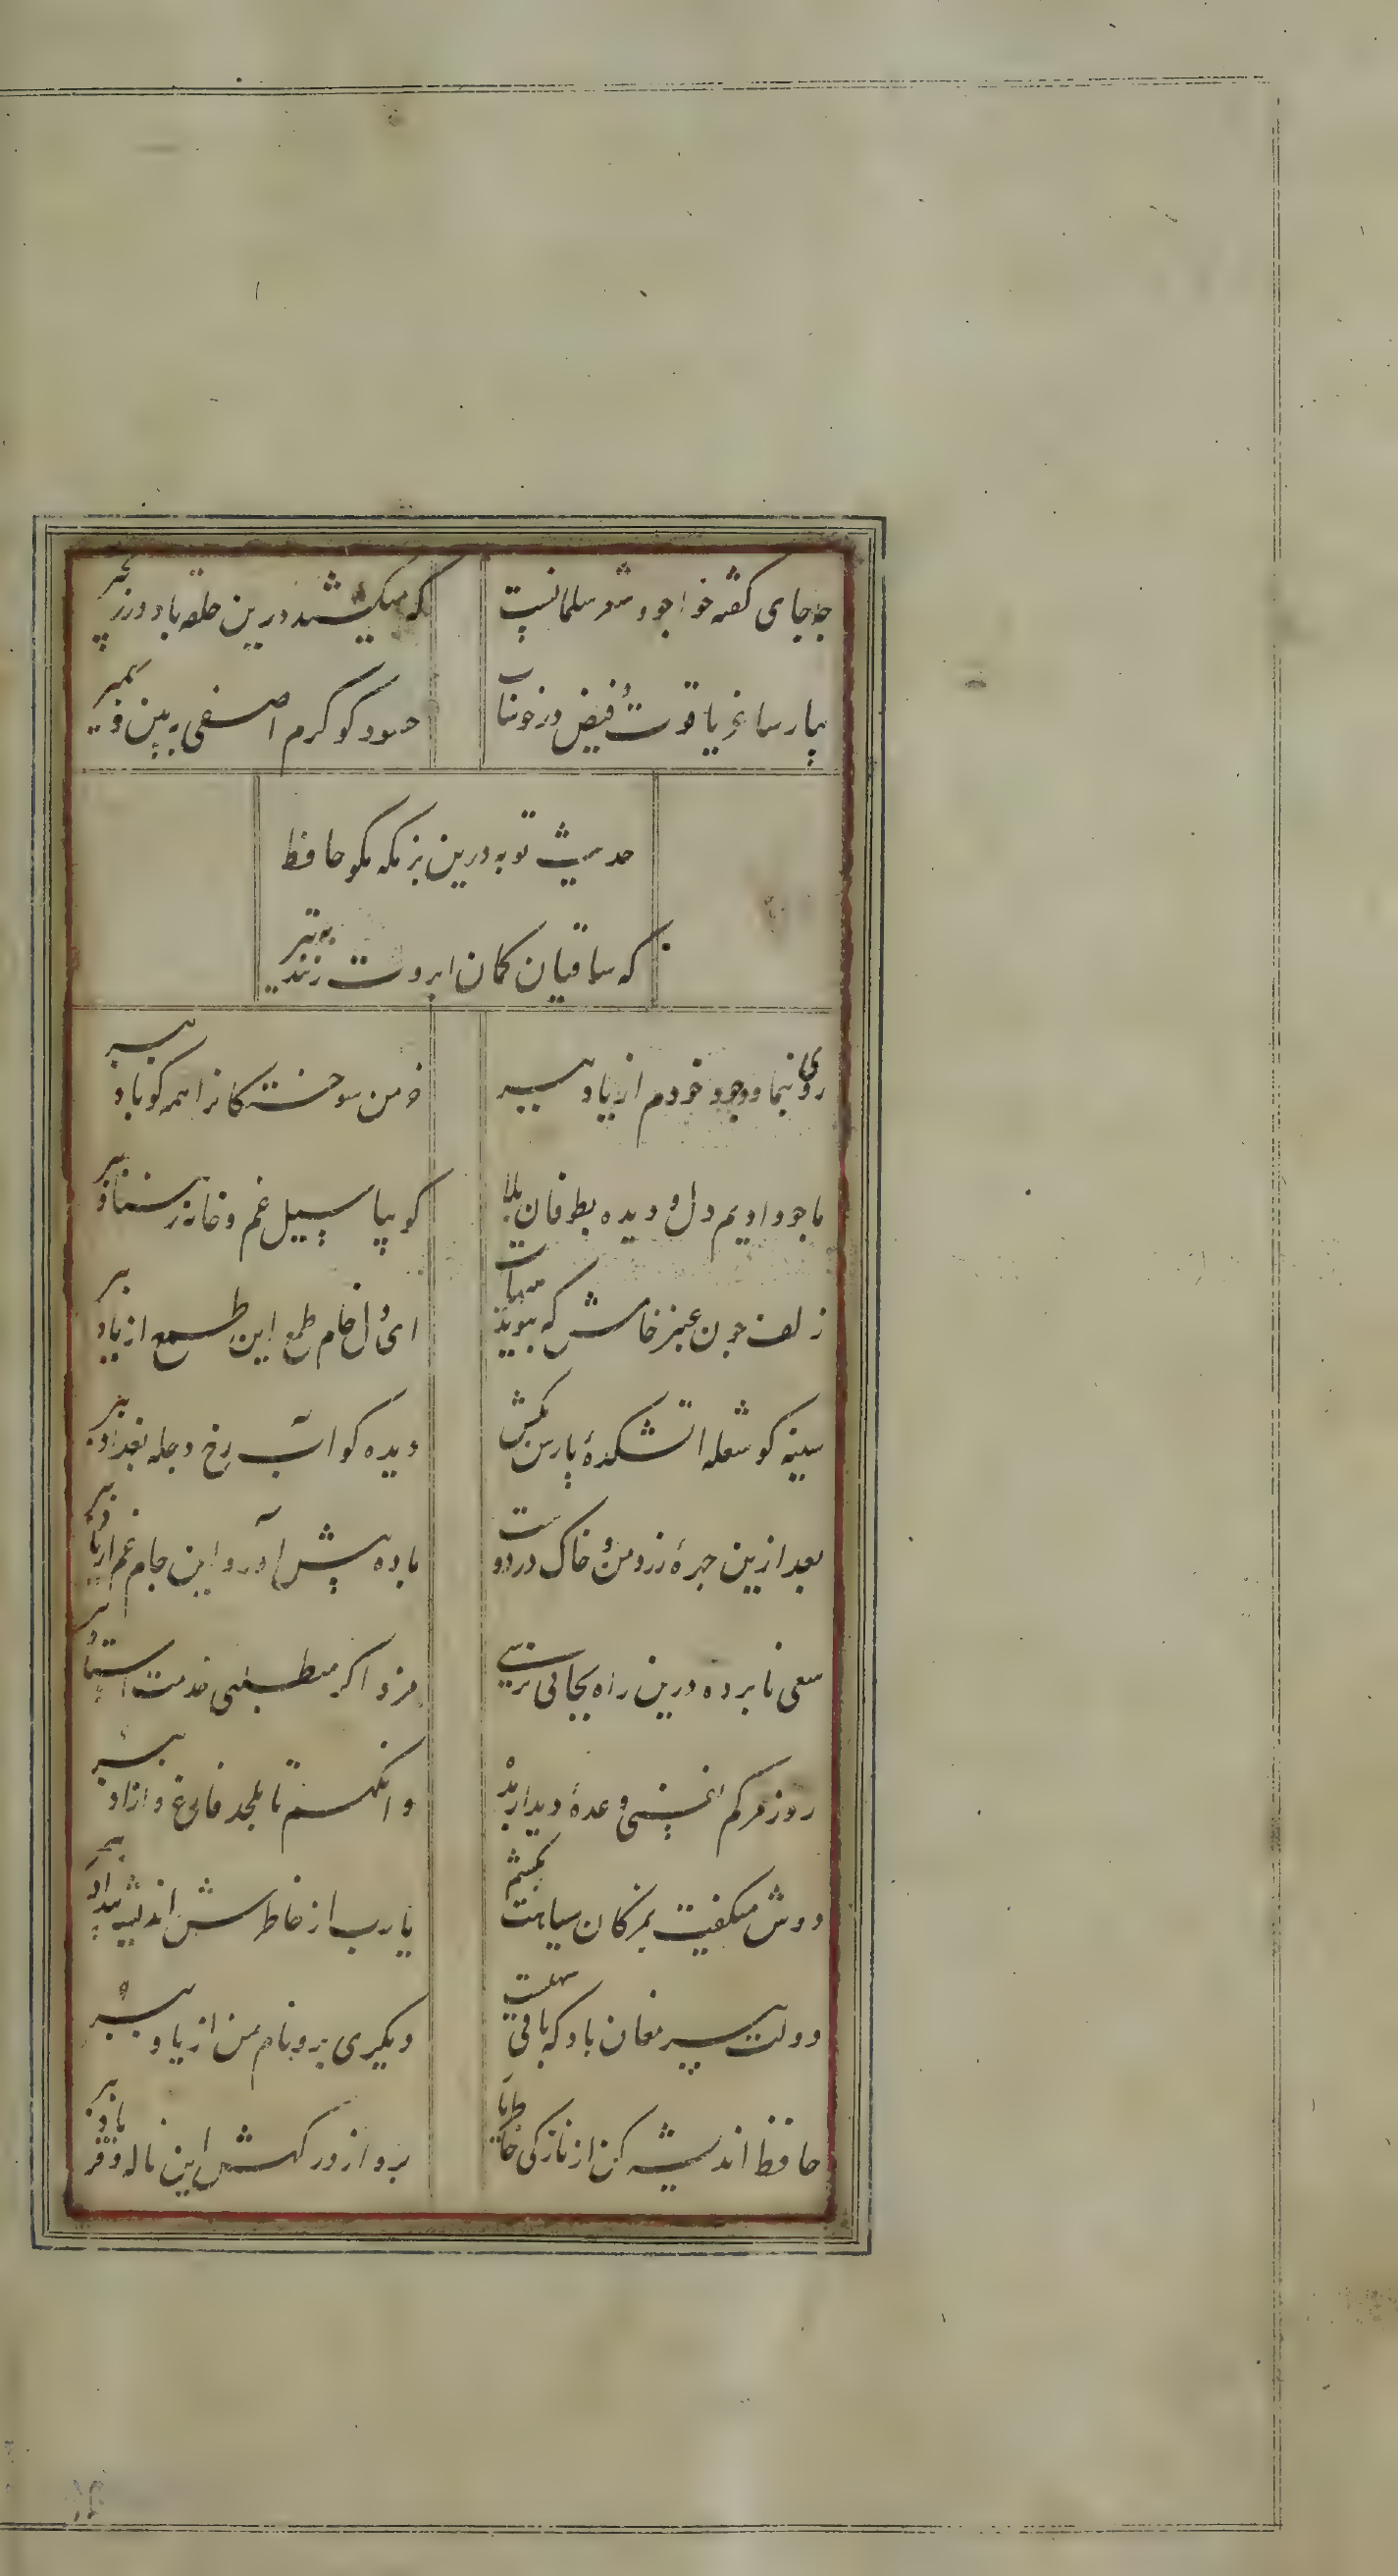 چه جای گفته خواجو و شعر سلمانست
که میکشند درین حلقه باد در زنجیر
بیار ساغر یاقوت فیض در خوشاب
حسود کو کرم آصفی ببین و بمیر
حدیث توبه درین بزمگه مگو حافظ
که ساقیان کمان ابروت زنند به تیر
روی بنما و وجود خودم از یاد ببر
خرمن سوختگانرا همه گو باد ببر
ما چو دادیم دل و دیده بطوفان بلا
گو بیا سیل غم و خانه ز بنیاد ببر
زلف چون عنبر خامش که ببوید هیهات
ای دل خام طمع این طمع از یاد ببر
سینه گو شعله اتشکدهٔ پارس بکش
دیده گو آب رخ دجله بغداد ببر
بعد ازین چهرهٔ زرد من و خاک در دوست
باده پیش آر و این جام غم از یاد ببر
سعی نابرده درین راه بجائی نرسی
مزد اگر میطلبی خدمت استاد ببر
روز مرگم نفسی وعدهٔ دیدار بده
وانگهم تا بلحد فارغ و ازاد ببر
دوش میگفت بمژگان سیاهت بکشم
یارب از خاطرش اندیشه بیداد ببر
دولت پیر مغان باد که باقی سهلست
دیگری برو نام من از یاد ببر
حافظ اندیشه کن از نازکی خاطر یار
برو از درگهش این ناله و فریاد ببر